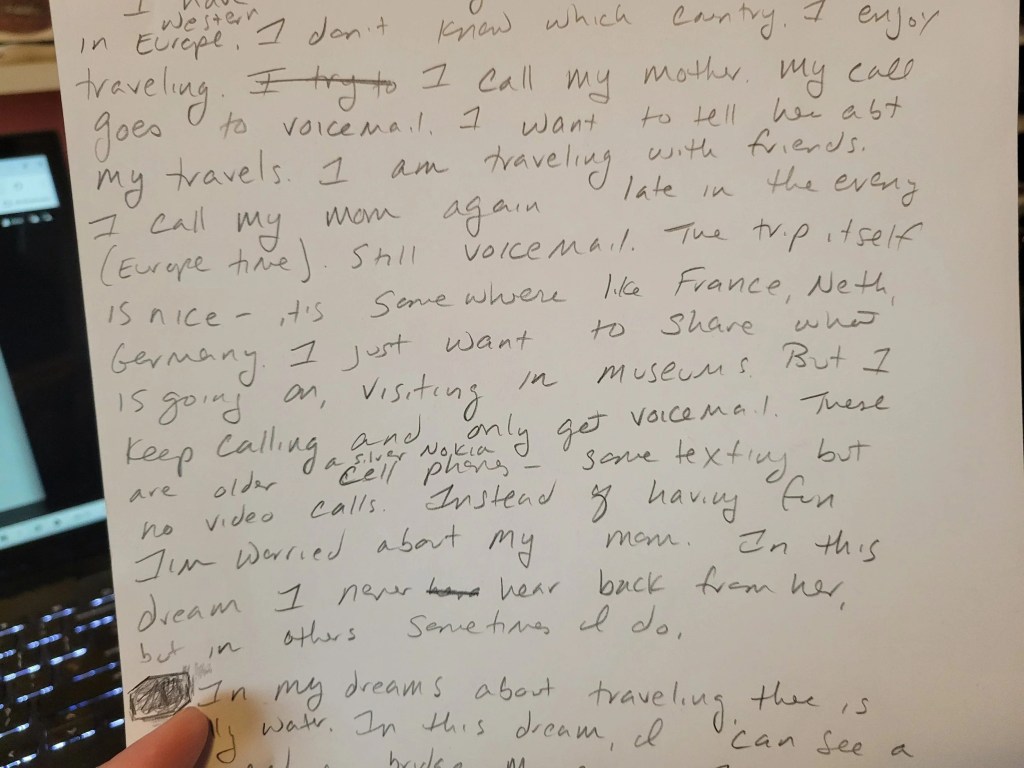 I have
Western
in Europe. I don't know which country. I enjoy
traveling. I try to I call my mother. My call
goes to voicemail. I want to tell her abt
my travels. I am traveling with friends.
I call my mom again late in the eveng
(Europe time). Still voicemail. The trip itself
is nice - it's somewhere like France, Neth,
Germany. I just want to share what
is going on, visiting in museums. But I
keep calling and only get voicemail. These
a silver Nokia
are older cell phones - some texting but
no video calls. Instead of having fun
I'm worried about my mom. In this
dream I never hear back from her,
but in others sometimes I do.
In my dreams about traveling, thee is
lly water. In this dream, I can see a
bridge